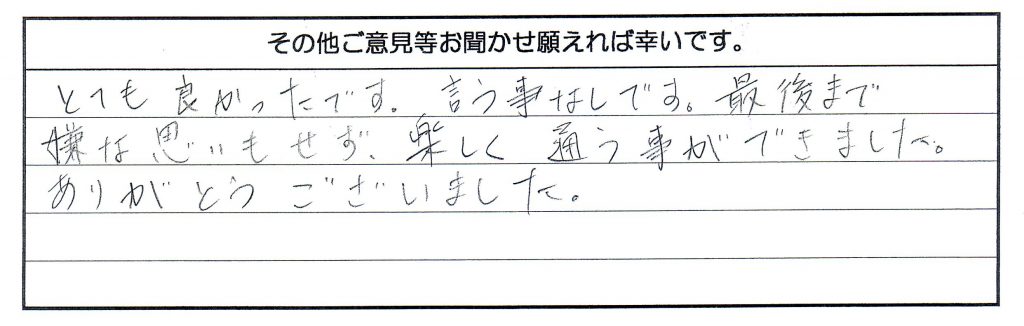 その他ご意見等お聞かせ願えれば幸いです。
とても良かったです。言う事なしです。最後まで
嫌な思いもせず、楽しく通う事ができました。
ありがとうございました。